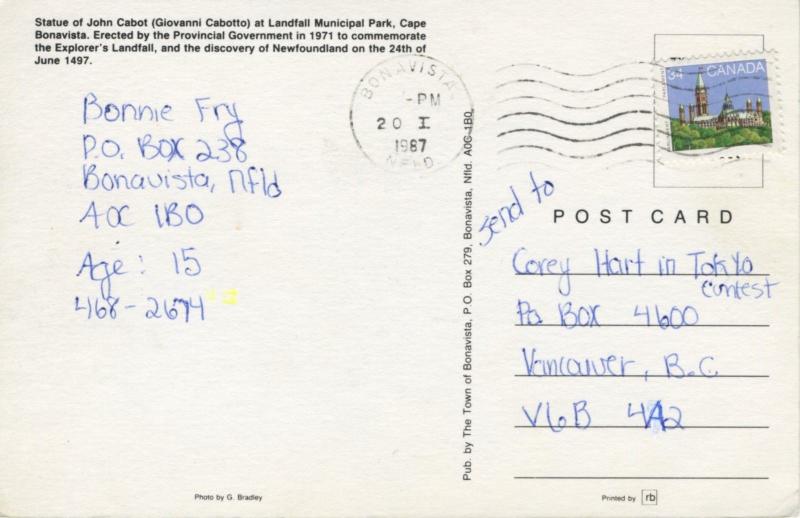 Statue of John Cabot (Giovanni Cabotto) at Landfall Municipal Park, Cape
Bonavista. Erected by the Provincial Government in 1971 to commemorate
the Explorer's Landfall, and the discovery of Newfoundland on the 24th of
June 1497.
Bonnie Fry
P.O. BOX 238
Bonavista, Nfld
AOC 1BO
Age: 15
468-2674
Photo by G. Bradley
Pub. by The Town of Bonavista, P.O. Box 279, Bonavista, Nfld. A0C 1B0
BONAVISTA
-PM
20 I
1987
NFLD.
34 CANADA
POST CARD
send to
Corey Hart in Tokyo
contest
Po BOX 4600
Vancouver, B.C.
V6B 4A2
Printed by rb